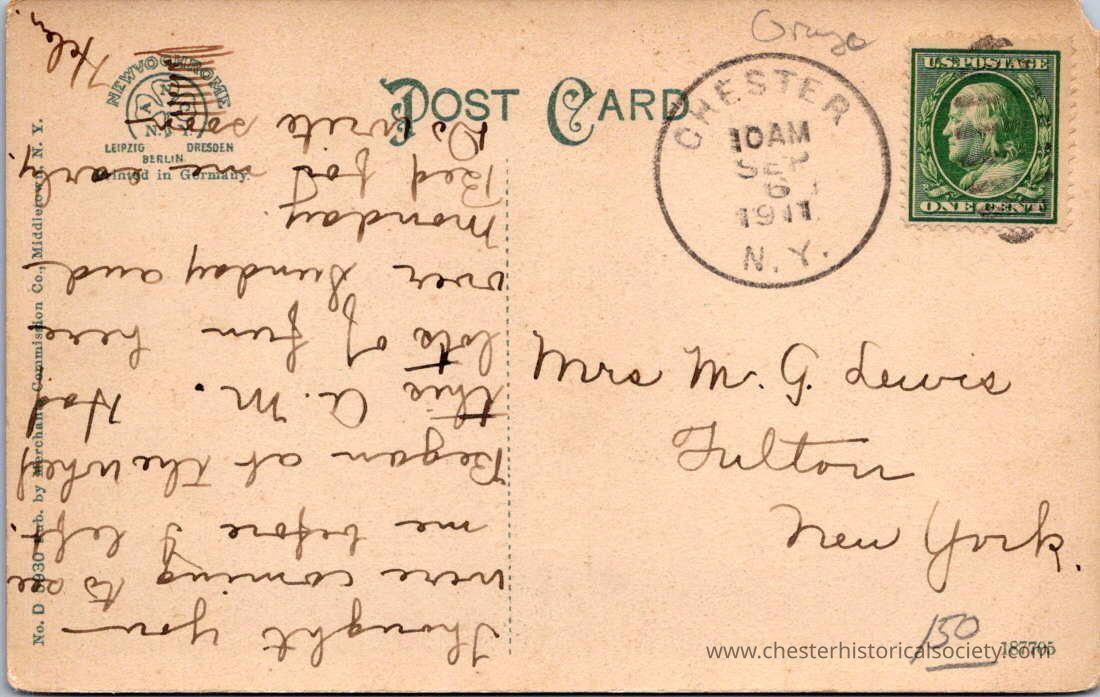 Orange
POST CARD
NEWVOCHROME
A N C
N.Y.
LEIPZIG DRESDEN
BERLIN
Printed in Germany.
No. D 5930 Pub. by Merchants Commission Co., Middletown, N. Y.
CHESTER
10 AM
SEP
6
1911
N. Y.
U.S. POSTAGE
ONE CENT
Mrs M. G. Lewis
Fulton
New York.
Thought you
were coming to see
me before I left.
Began at the wheel
this A.M. Had
lots of fun here
over Sunday and
Monday.
Bed for me early.
Do write soon
Helen
150
187705
www.chesterhistoricalsociety.com